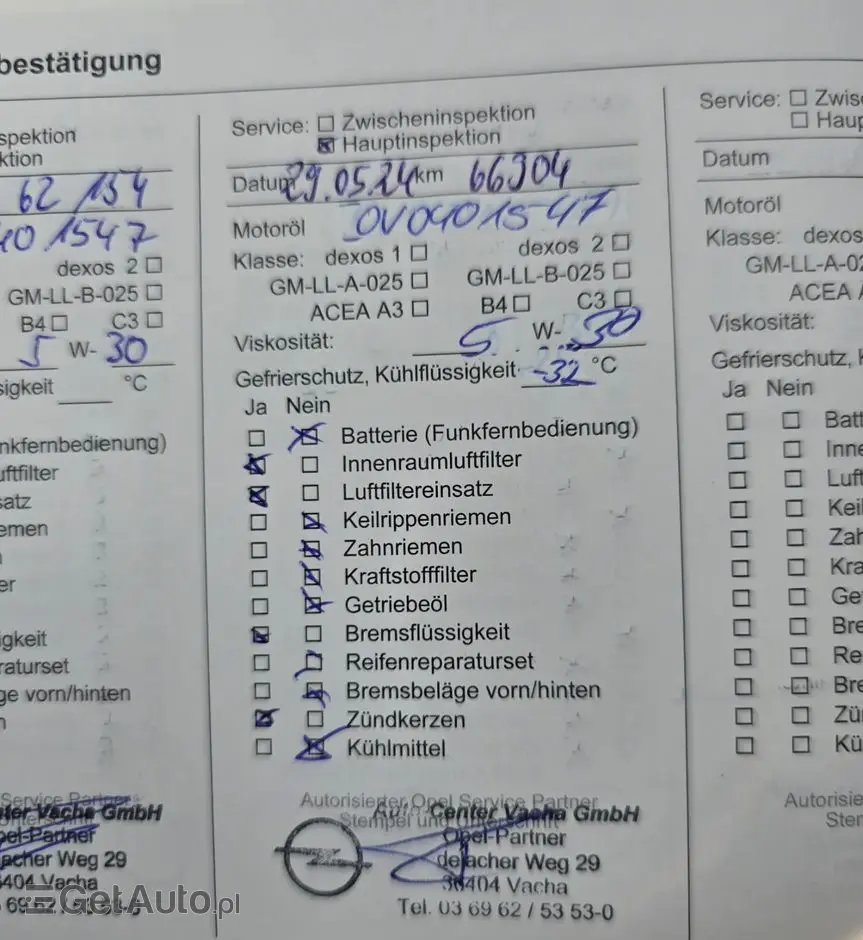 bestätigung
spektion
ktion
62 154
40 1547
dexos 2
GM-LL-B-025
B4 C3
5 W-30
sigkeit °C
nkfernbedienung)
uftfilter
satz
emen
er
igkeit
raturset
ge vorn/hinten
n
Service Partner
ter Vacha GmbH
pel-Partner
acher Weg 29
404 Vacha
Service: Zwischeninspektion
Hauptinspektion
Datum 29.05.24 km 66904
Motoröl OV0401547
Klasse: dexos 1 dexos 2
GM-LL-A-025 GM-LL-B-025
ACEA A3 B4 C3
Viskosität: 5 W-30
Gefrierschutz, Kühlflüssigkeit -32 °C
Ja Nein
Batterie (Funkfernbedienung)
Innenraumluftfilter
Luftfiltereinsatz
Keilrippenriemen
Zahnriemen
Kraftstofffilter
Getriebeöl
Bremsflüssigkeit
Reifenreparaturset
Bremsbeläge vorn/hinten
Zündkerzen
Kühlmittel
Autorisierter Opel Service Partner
Stempel und Unterschrift
Auto Center Vacha GmbH
Opel-Partner
acher Weg 29
36404 Vacha
Tel. 03 69 62 / 53 53-0
Service: Zwis
Haup
Datum
Motoröl
Klasse: dexos
GM-LL-A-02
ACEA A
Viskosität:
Gefrierschutz, K
Ja Nein
Batt
Inne
Luf
Kei
Zah
Kra
Ge
Bre
Re
Bre
Zü
Kü
Autorisie
Ster
GetAuto.pl